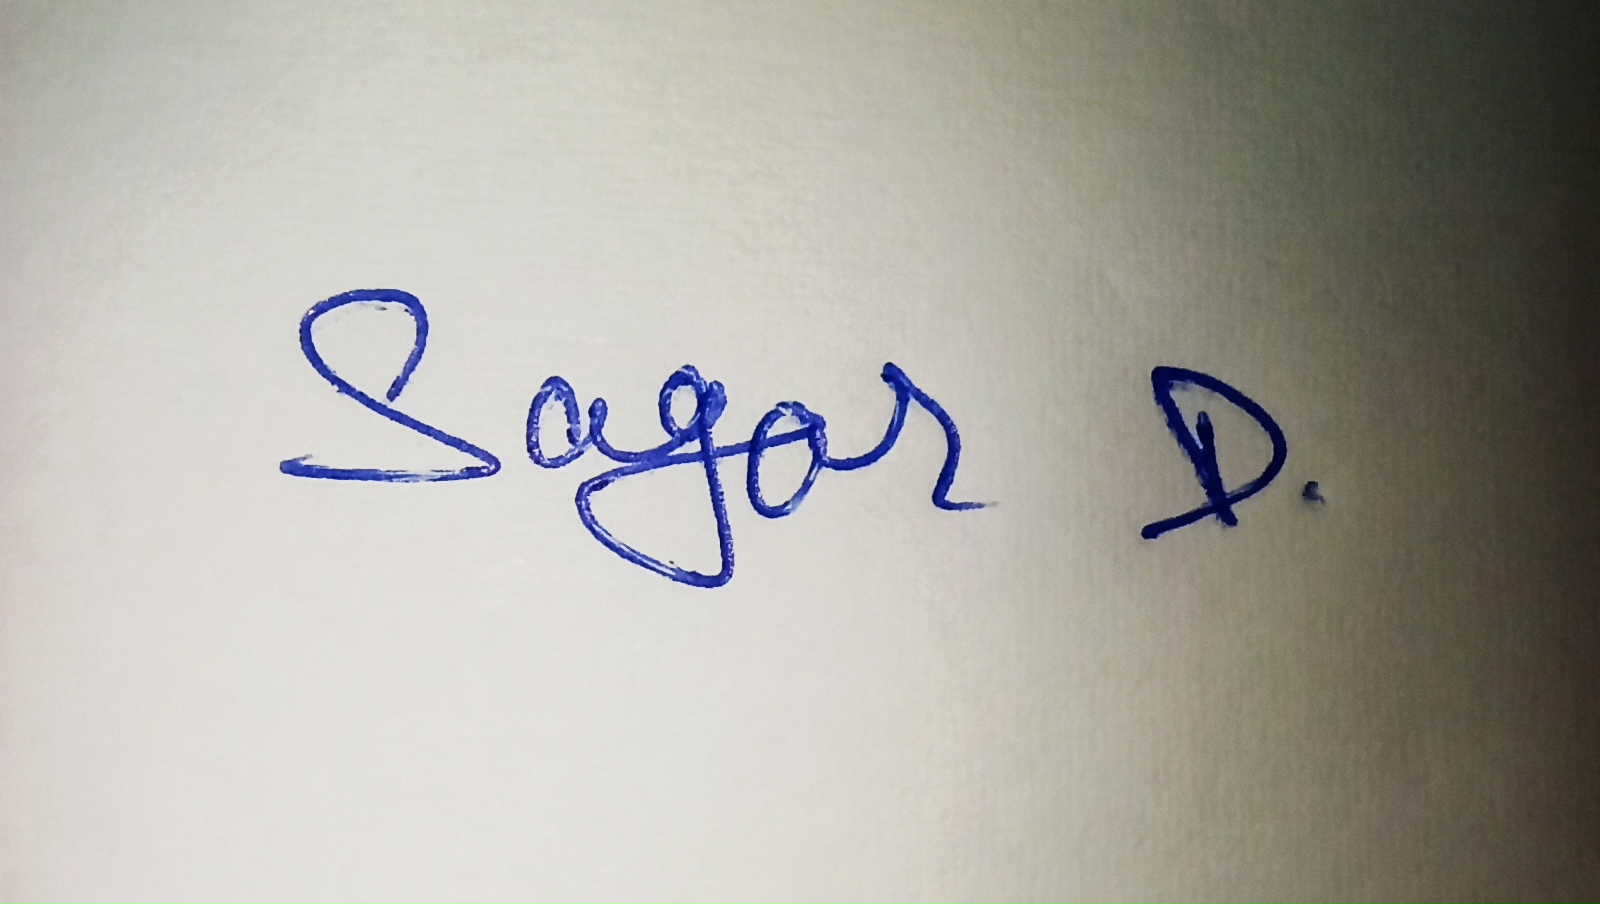 Sagar D.